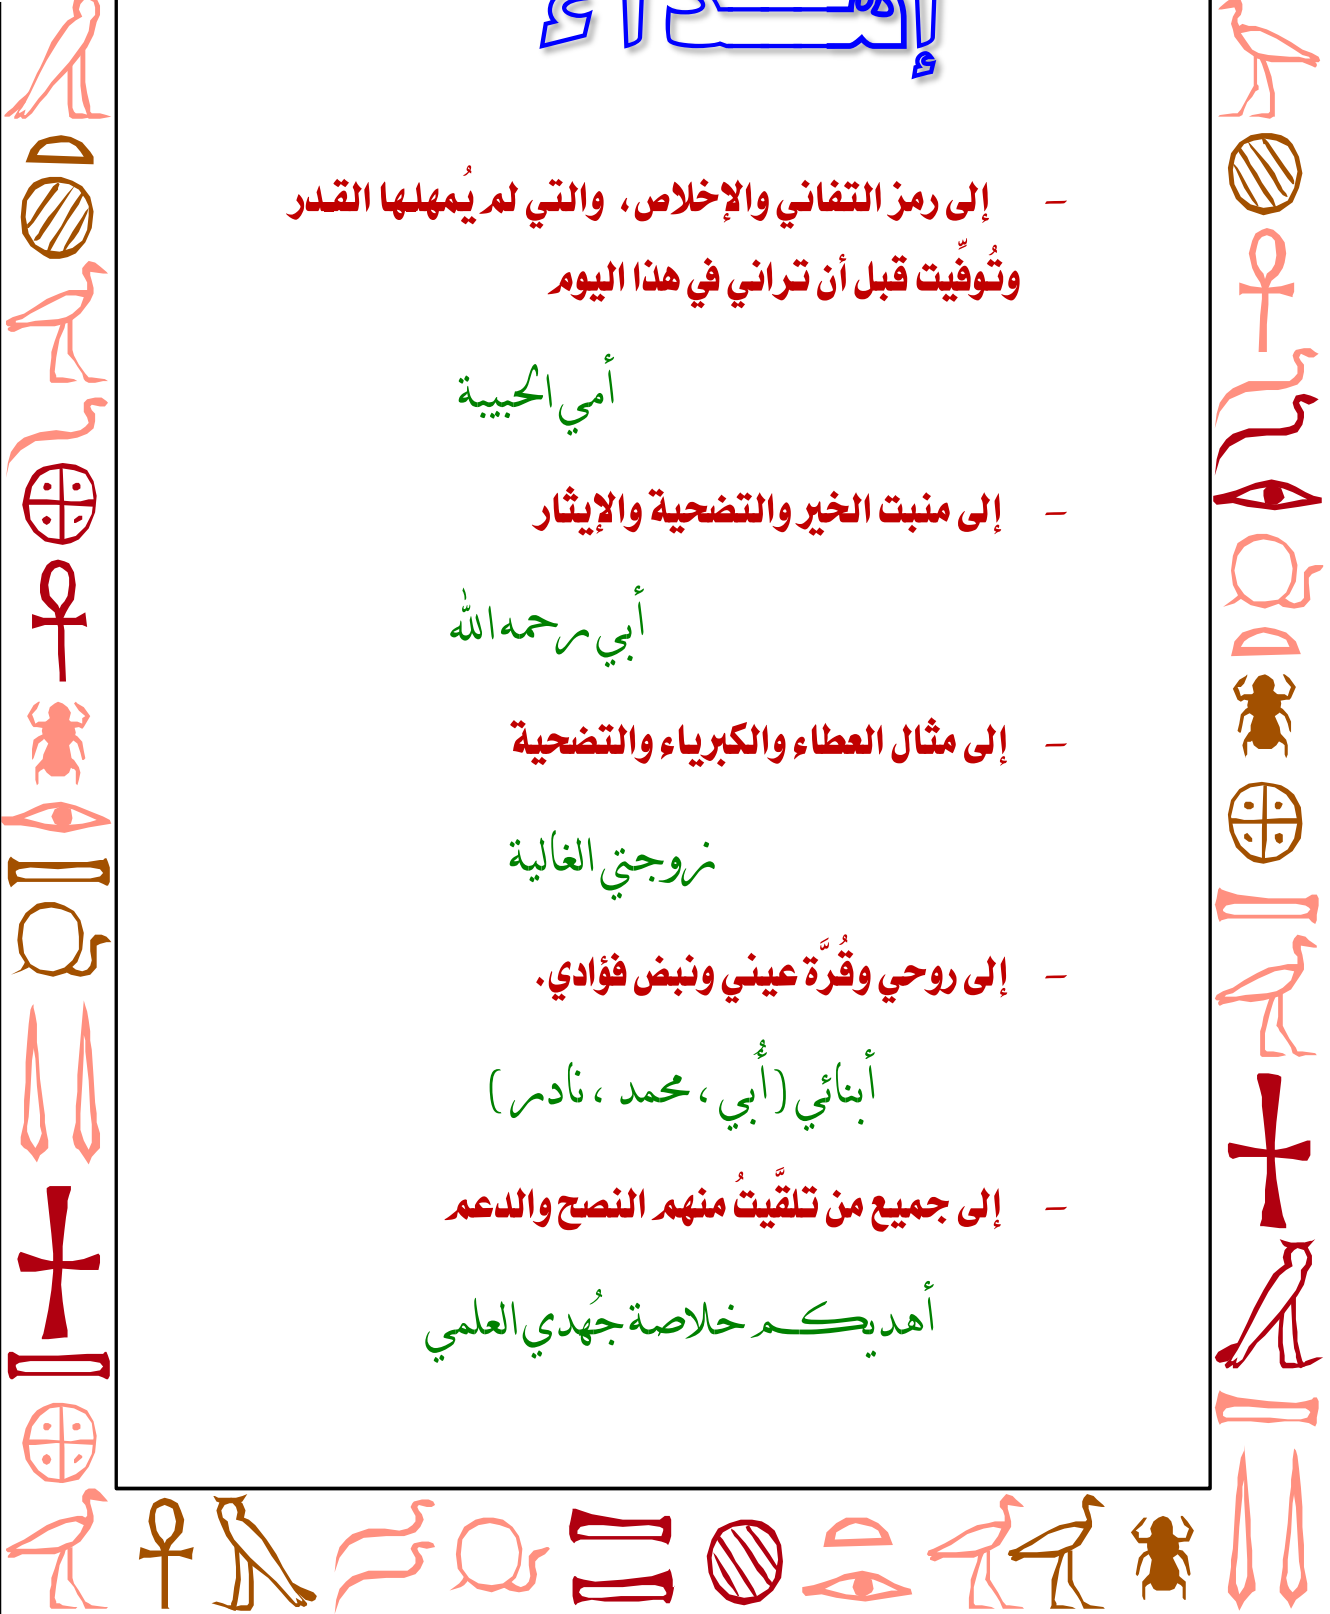 إهداء
- إلى رمز التفاني والإخلاص، والتي لم يُمهلها القدر
وتُوفِّيت قبل أن تراني في هذا اليوم
أمي الحبيبة
- إلى منبت الخير والتضحية والإيثار
أبي رحمه الله
- إلى مثال العطاء والكبرياء والتضحية
زوجتي الغالية
- إلى روحي وقُرَّة عيني ونبض فؤادي.
أبنائي (أُبي، محمد، نادر)
- إلى جميع من تلقَّيتُ منهم النصح والدعم
أهديكم خلاصة جُهدي العلمي